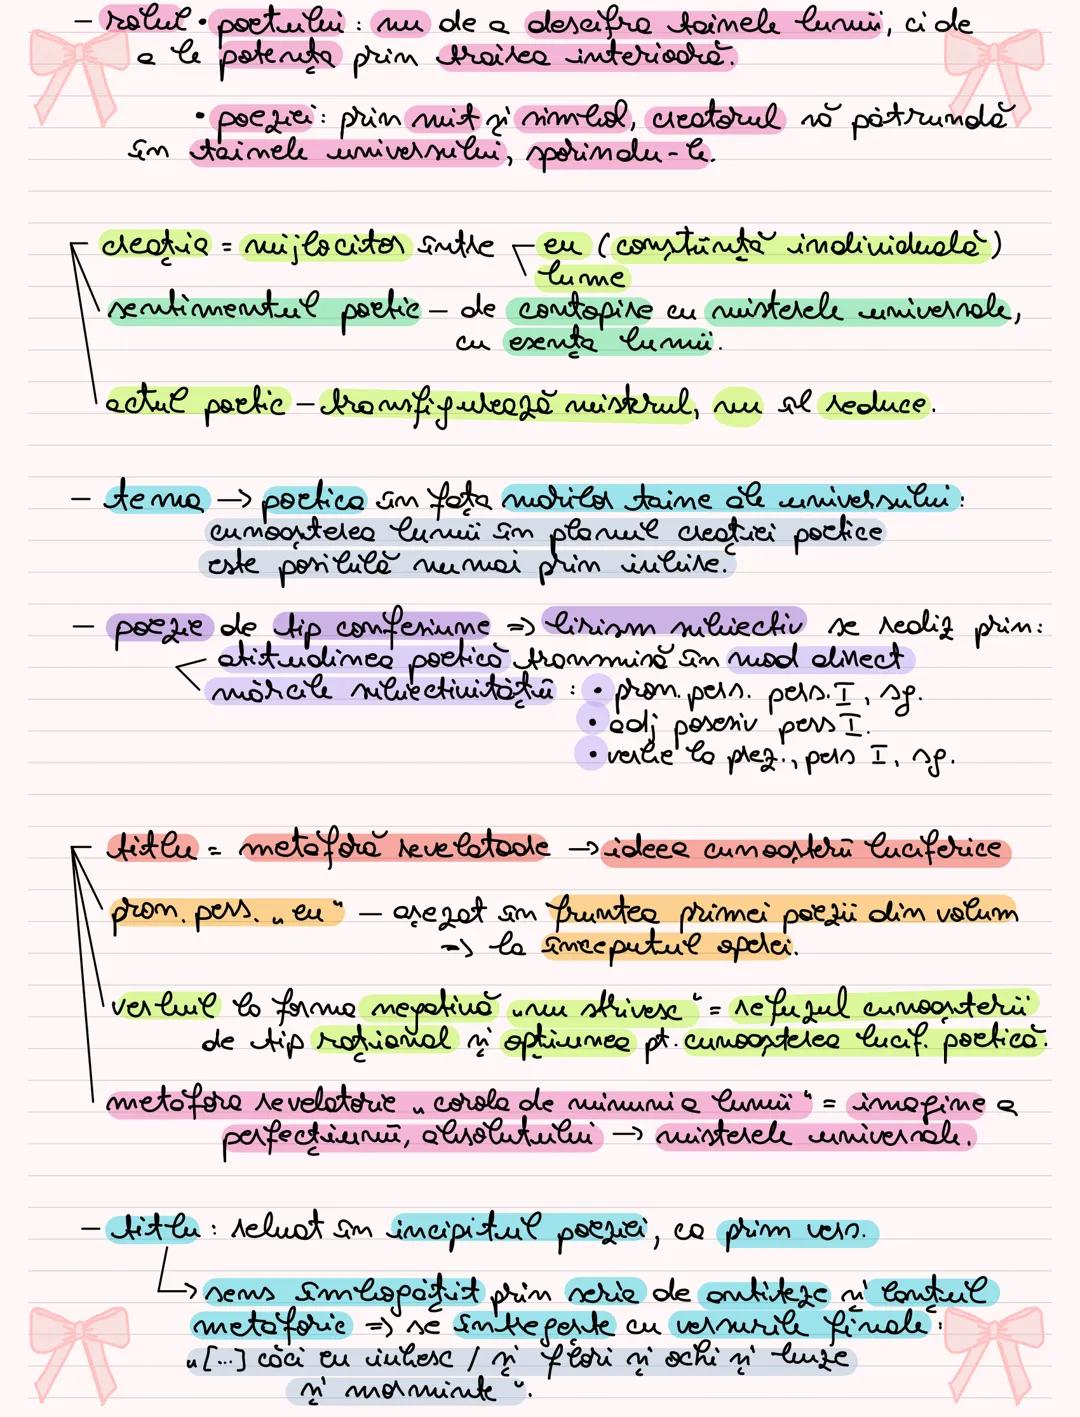 - rolul • poetului: nu de a descifra tainele lumii, ci de
a le potența prin trăirea interioară.
• poeziei: prin mit și simbol, creatorul să pătrundă
în tainele universului, sporindu-le.
creația = mijlocitor între eu (conștiință individuală)
lume
sentimentul poetic - de contopire cu misterele universale,
cu esența lumii.
actul poetic - transfigurează misterul, nu îl reduce.
- tema -> poetica în fața marilor taine ale universului:
cunoașterea lumii în planul creației poetice
este posibilă numai prin iubire.
- poezie de tip confesiune => lirism subiectiv se realiz prin:
atitudinea poetică transmisă în mod direct
mărcile subiectivității: • pron. pers. pers. I, sg.
• adj posesiv pers I.
• verbe la prez., pers I, sg.
titlu = metaforă revelatoare -> ideea cunoașterii luciferice
pron. pers. „eu" - așezat în fruntea primei poezii din volum
=> la începutul operei.
verbul la forma negativă „nu strivesc" = refuzul cunoașterii
de tip rațional și opțiunea pt. cunoașterea lucif. poetică.
metafora revelatorie „corola de minuni a lumii" = imagine a
perfecțiunii, absolutului -> misterele universale.
- titlu: reluat în incipitul poeziei, ca prim vers.
-> sens îmbogățit prin seria de antiteze și lanțul
metaforic => se întregește cu versurile finale:
„[...] căci eu iubesc / și flori și ochi și buze
și morminte".